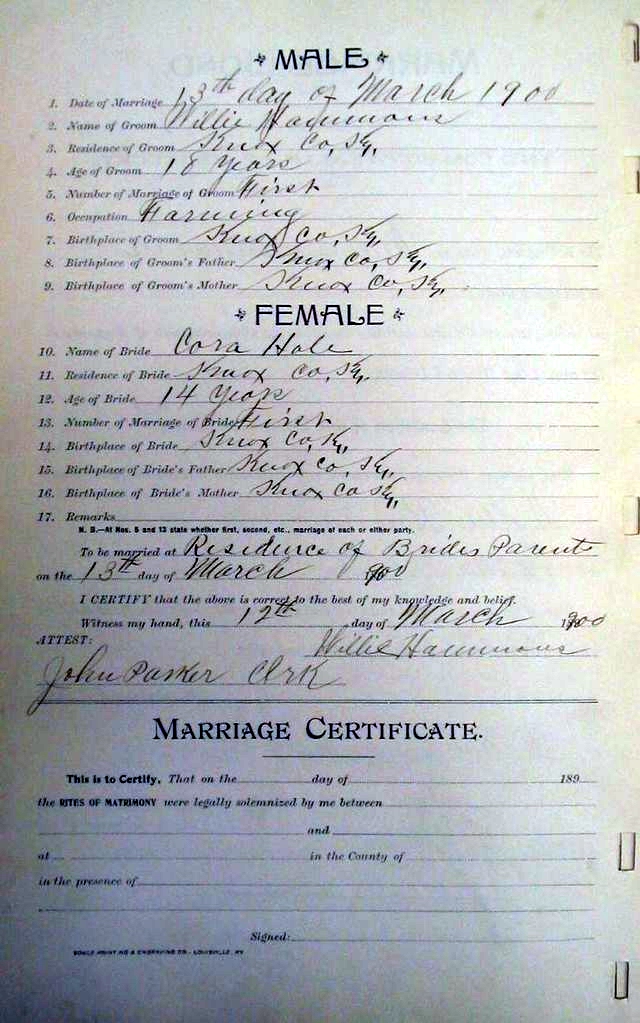 MALE
1. Date of Marriage 13th day of March 1900
2. Name of Groom Willie Hammons
3. Residence of Groom Knox Co, Ky,
4. Age of Groom 18 Years
5. Number of Marriage of Groom First
6. Occupation Farming
7. Birthplace of Groom Knox Co, Ky,
8. Birthplace of Groom's Father Knox Co, Ky,
9. Birthplace of Groom's Mother Knox Co, Ky,
FEMALE
10. Name of Bride Cora Hale
11. Residence of Bride Knox Co, Ky,
12. Age of Bride 14 Years
13. Number of Marriage of Bride First
14. Birthplace of Bride Knox Co, Ky,
15. Birthplace of Bride's Father Knox Co, Ky,
16. Birthplace of Bride's Mother Knox Co Ky,
17. Remarks
N. B.—At Nos. 5 and 13 state whether first, second, etc., marriage of each or either party.
To be married at Residence of Brides Parents
on the 13th day of March 1900
I CERTIFY that the above is correct to the best of my knowledge and belief.
Witness my hand, this 12th day of March 1900
ATTEST: Willie Hammons
John Parker Clrk
MARRIAGE CERTIFICATE.
This is to Certify, That on the day of 189
the RITES OF MATRIMONY were legally solemnized by me between
and
at in the County of
in the presence of
Signed:
PRINTING & ENGRAVING CO., LOUISVILLE, KY